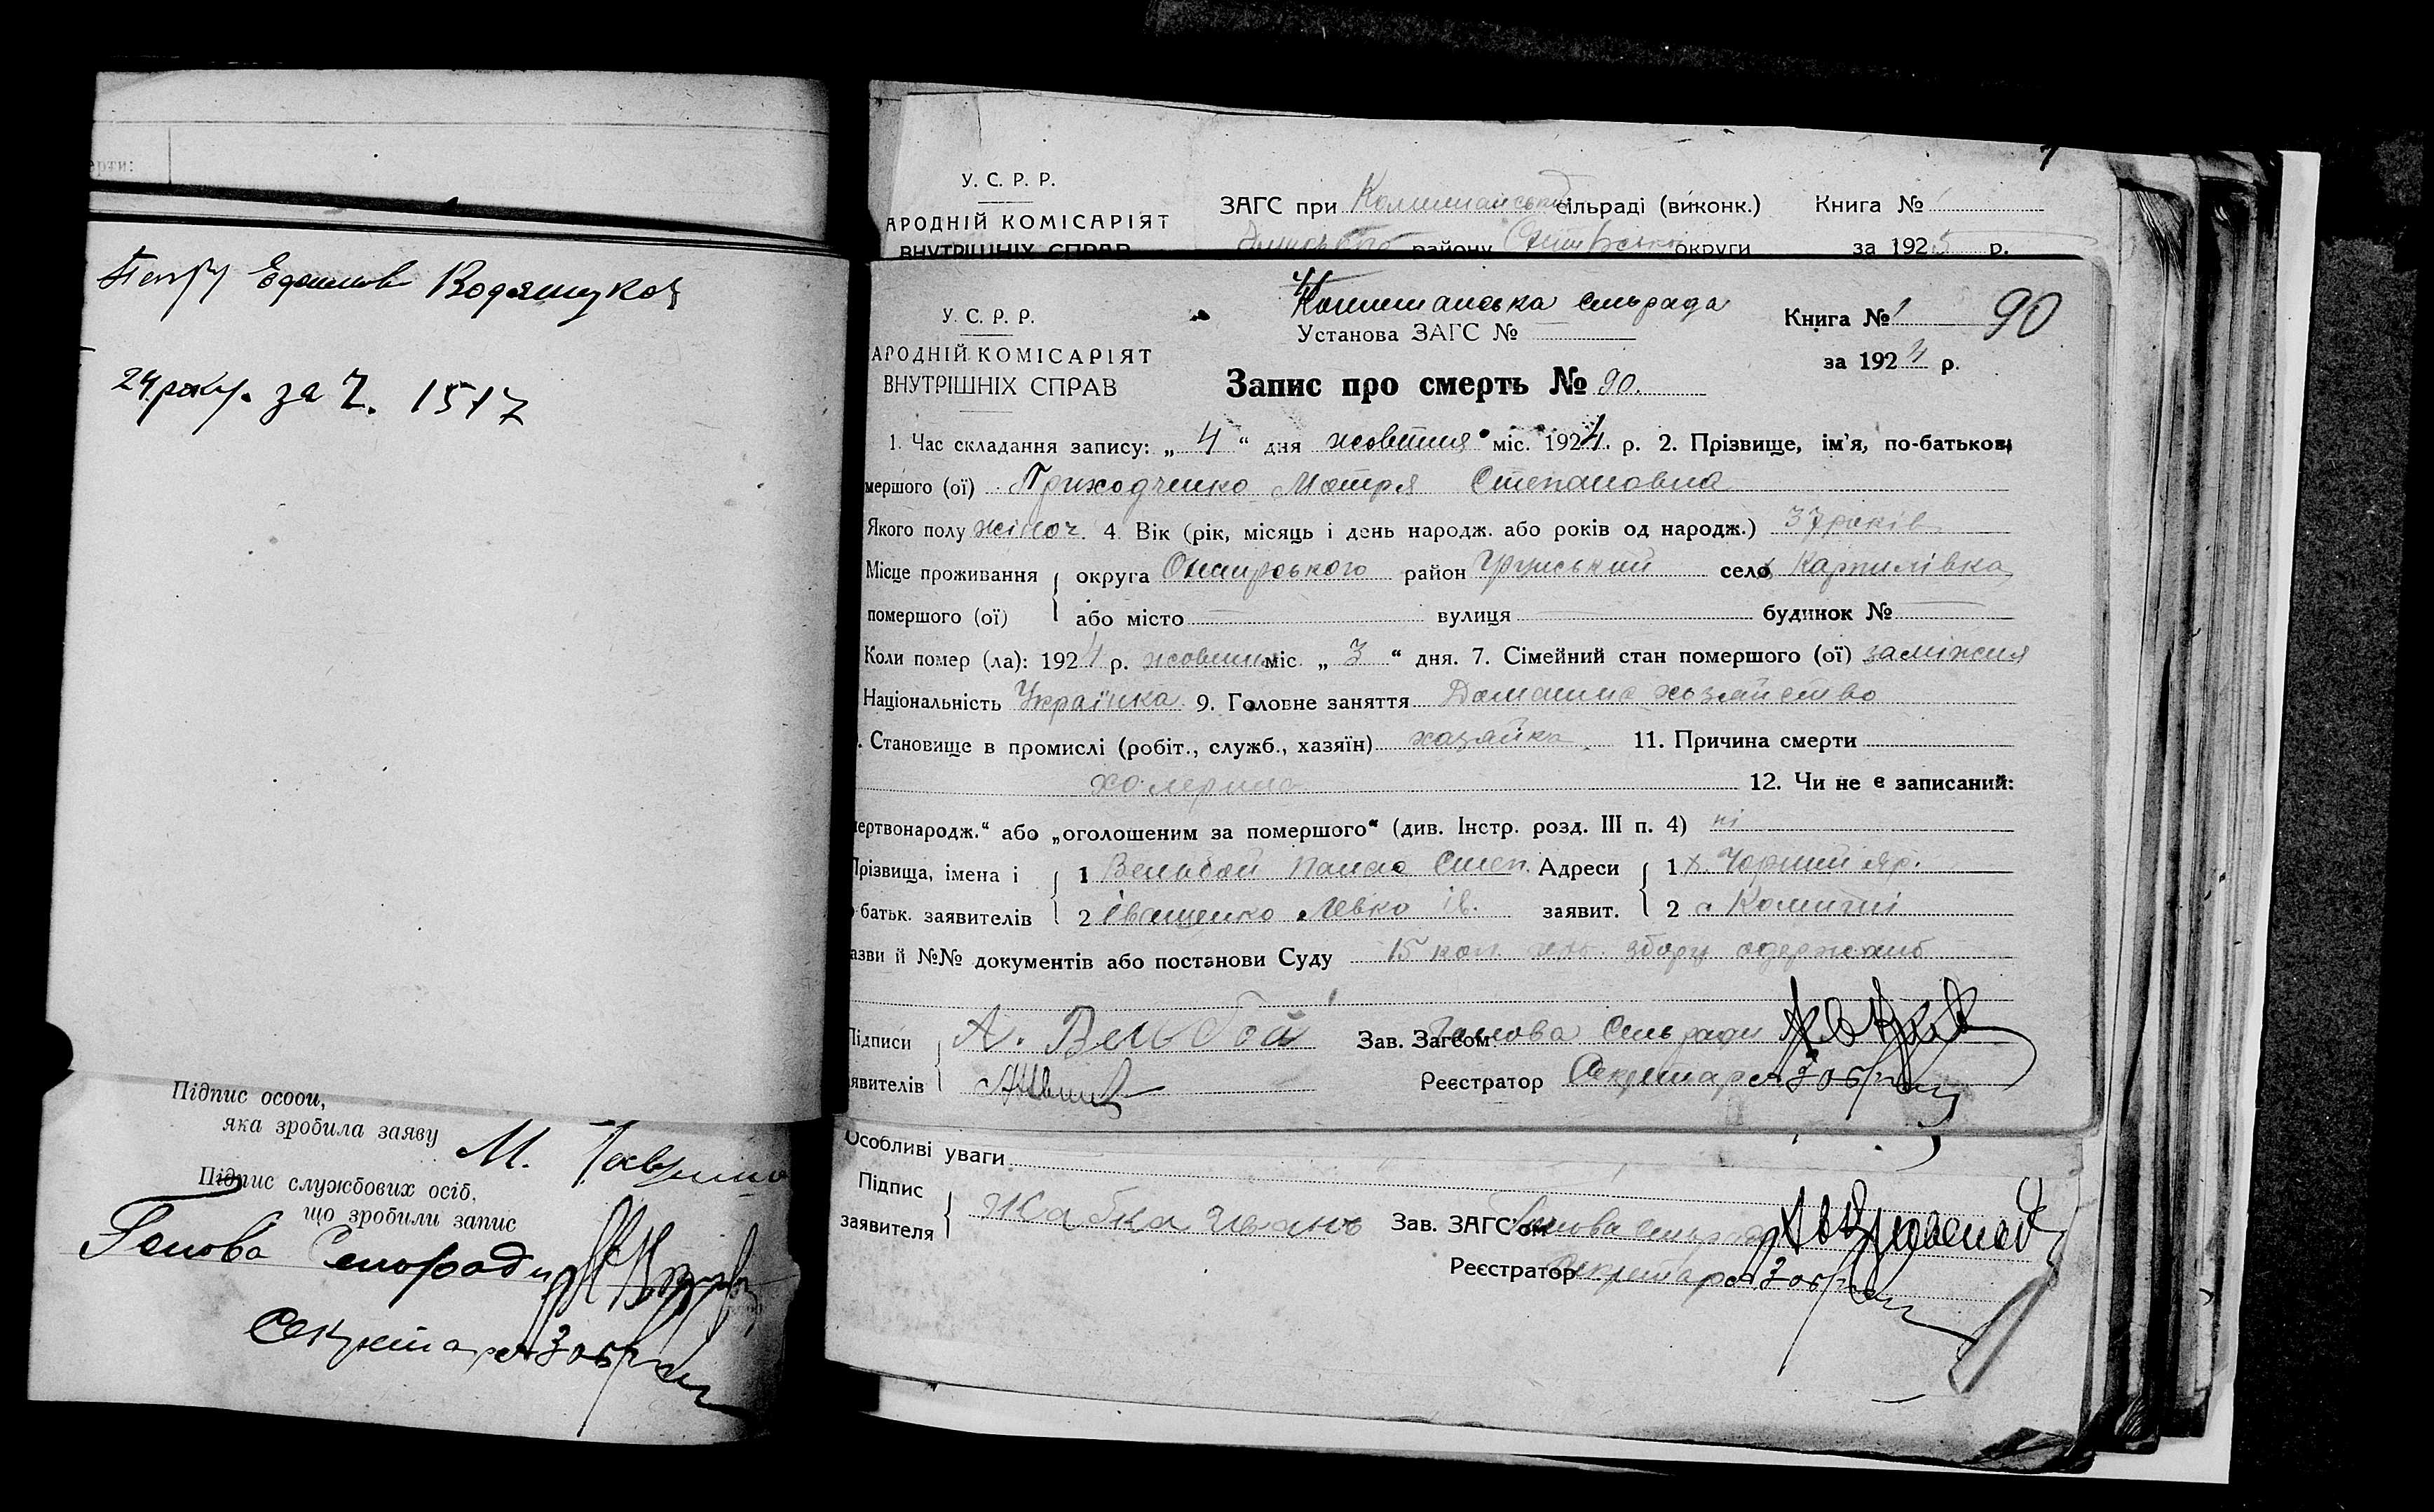 ерти:
Петру
24 року. за Ч. 1517
Підпис особи,
яка зробила заяву М.
Підпис службових осіб,
що зробили запис
Голова Сільради
Секретар
У. С. Р. Р.
АРОДНІЙ КОМІСАРІЯТ
ВНУТРІШНІХ СПРАВ
ЗАГС при сільраді (виконк.) Книга №
району округи за 1925 р.
сільрада
У. С. Р. Р.
Установа ЗАГС №
Книга № 1 90
АРОДНІЙ КОМІСАРІЯТ
за 1924 р.
ВНУТРІШНІХ СПРАВ
Запис про смерть № 90.
1. Час складання запису: „ 4 “ дня жовтня міс. 1924 р. 2. Прізвище, ім'я, по-батькові
мершого (ої) Приходченко Мотря Степановна
Якого полу жіноч. 4. Вік (рік, місяць і день народж. або років од народж.) 37 років
Місце проживання округа район Грунський село Карпилівка
помершого (ої) або місто вулиця будинок №
Коли помер (ла): 1924 р. жовтня міс. „ 3 “ дня. 7. Сімейний стан помершого (ої) заміжня
Національність Українка 9. Головне заняття Домашнє хозяйство
. Становище в промислі (робіт., служб., хазяїн) хазяйка 11. Причина смерти
холерина 12. Чи не є записаний:
мертвонародж.“ або „оголошеним за помершого“ (див. Інстр. розд. III п. 4) ні
Прізвища, імена і 1 Вельбой Панас Степ. Адреси 1 х. Чорний яр.
-батьк. заявителів 2 Іващенко Левко Ів. заявит. 2 с Комиші
азви й №№ документів або постанови Суду 15 коп. збору одержано
Підписи А. Вельбой Зав. Загсом Голова Сільради
явителів Реєстратор Секретар
Особливі уваги
Підпис
заявителя Жабка Иванъ Зав. ЗАГСом Голова сільради
Реєстратор Секретар